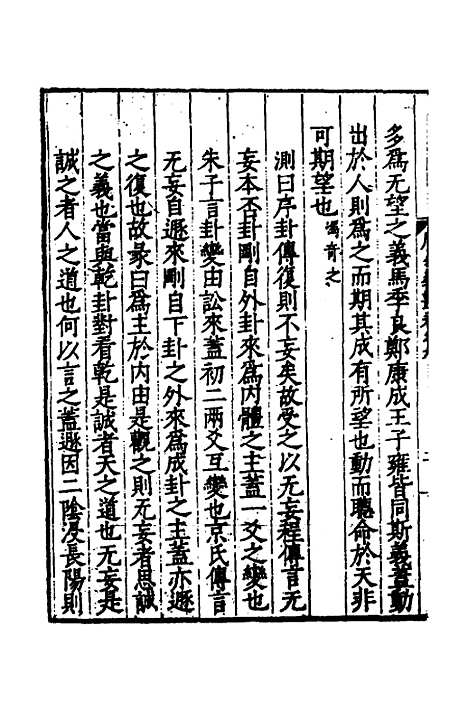 多爲无望之義馬季良鄭康成王子雍皆同斯義蓋動
出於人則爲之而期其成有所望也動而聽命於天非
可期望也馮奇之
測曰序卦傳復則不妄矣故受之以无妄程傳言无
妄本否卦剛自外卦來爲内體之主蓋一爻之變也
朱子言卦變由訟來蓋初二兩爻互變也京氏傳言
无妄自遯來剛自下卦之外來爲成卦之主蓋亦遯
之復也故彖曰爲主於内由是觀之則无妄者思誠
之義也當與乾卦對看乾是誠者天之道也无妄是
誠之者人之道也何以言之蓋遯因二陰浸長陽則